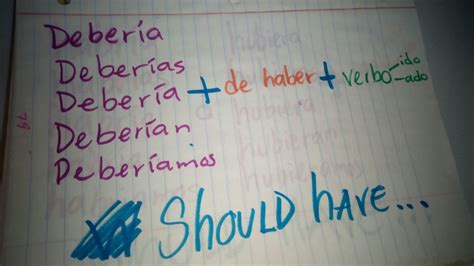 Debería
Deberías
Debería + de haber + verbo - ido
- ado
Deberían
Deberíamos
Should have...